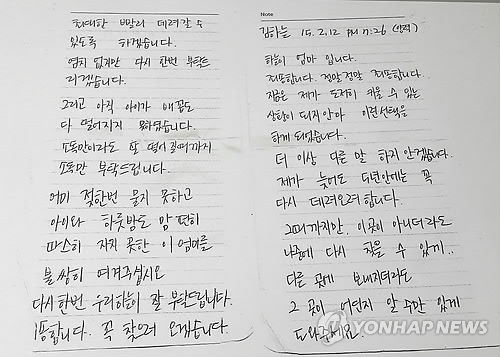 최대한 빨리 데려갈 수
있도록 하겠습니다.
염치 없지만 다시 한번 부탁드
리겠습니다.
그리고 아직 아이가 배꼽도
다 떨어지지 못하였습니다.
소독만이라도 또 떨어질때까지
소독만 부탁드립니다.
어미 젖한번 물지 못하고
아이와 하룻밤도 맘 편히
따스히 자지 못한 이 엄마를
불쌍히 여겨주십시오
다시한번 우리하늘이 잘 부탁드립니다.
죄송합니다. 꼭 찾으러 오겠습니다.
Note
김하늘 15. 2. 12 PM 7:26 (양력)
하늘이 엄마 입니다.
죄송합니다. 정말정말 죄송합니다.
지금은 제가 도저히 키울 수 있는
상황이 되지않아 이런선택을
하게 되었습니다.
더 이상 다른 말 하지 않겠습니다.
제가 늦어도 5년안에는 꼭
다시 데려오려합니다.
그때까지만, 이곳이 아니더라도
나중에 다시 찾을 수 있게..
다른 곳에 보내지더라도
그 곳이 어딘지 알 수만 있게
도와주세요.
YONHAP NEWS